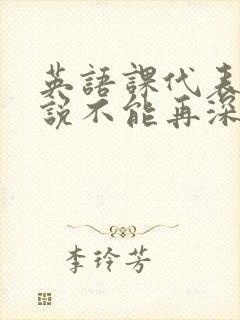 英語課代表
說不能再深
李玲芳